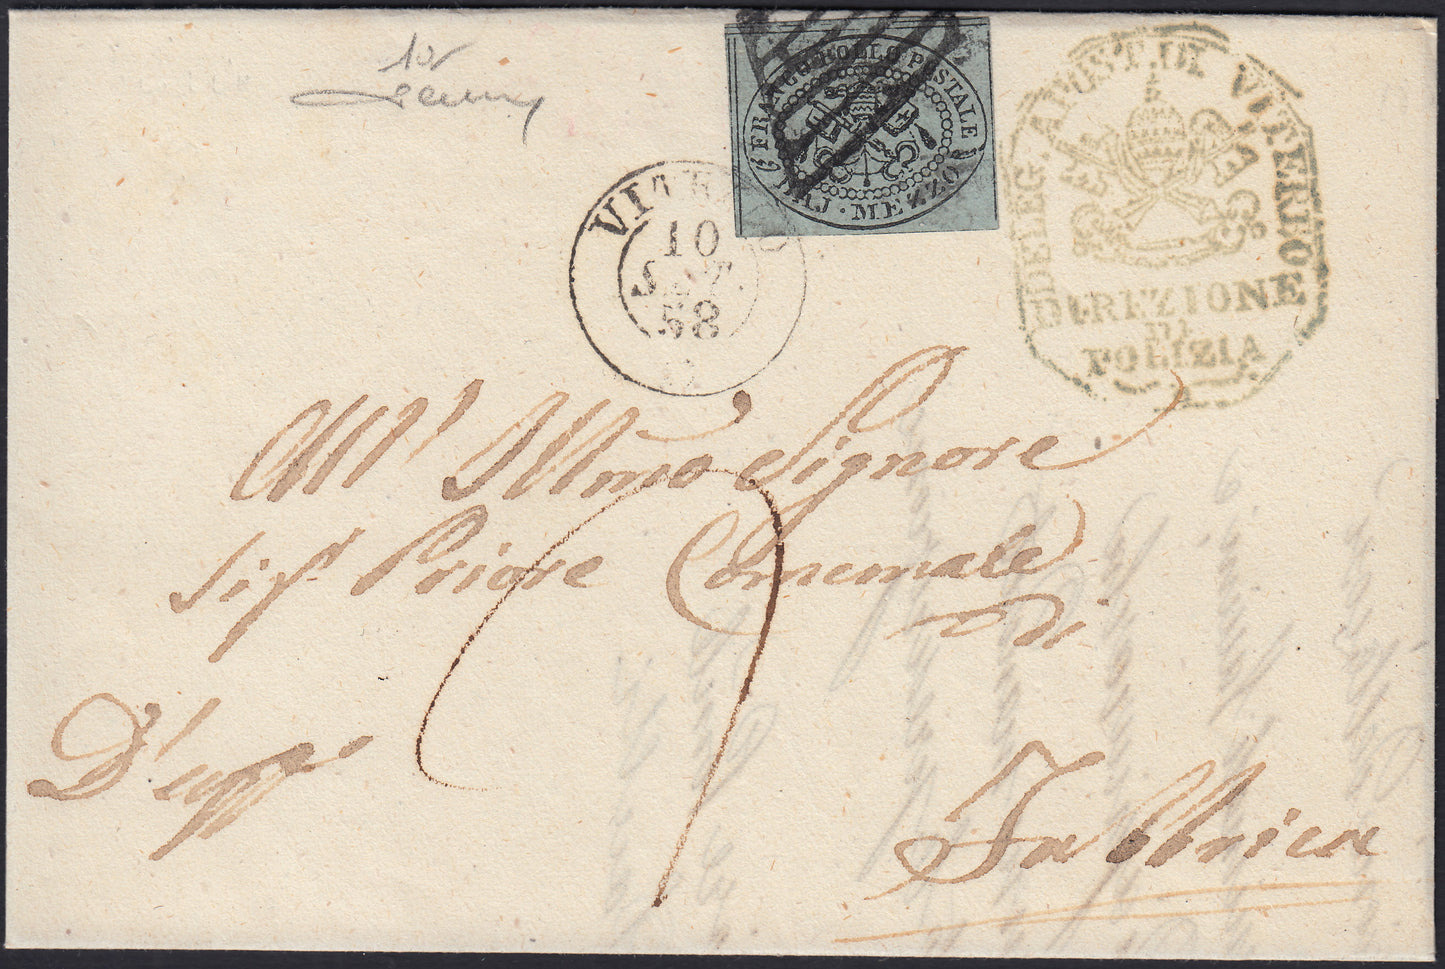 FRANCO BOLLO POSTALE
BAJ · MEZZO
VITERBO
10
SET.
58
DELEG. APOST. DI VITERBO
DIREZIONE
DI
POLIZIA
All' Illmo Signore
Sig.r Priore Comunale
di
Fabbrica
D'uff.o